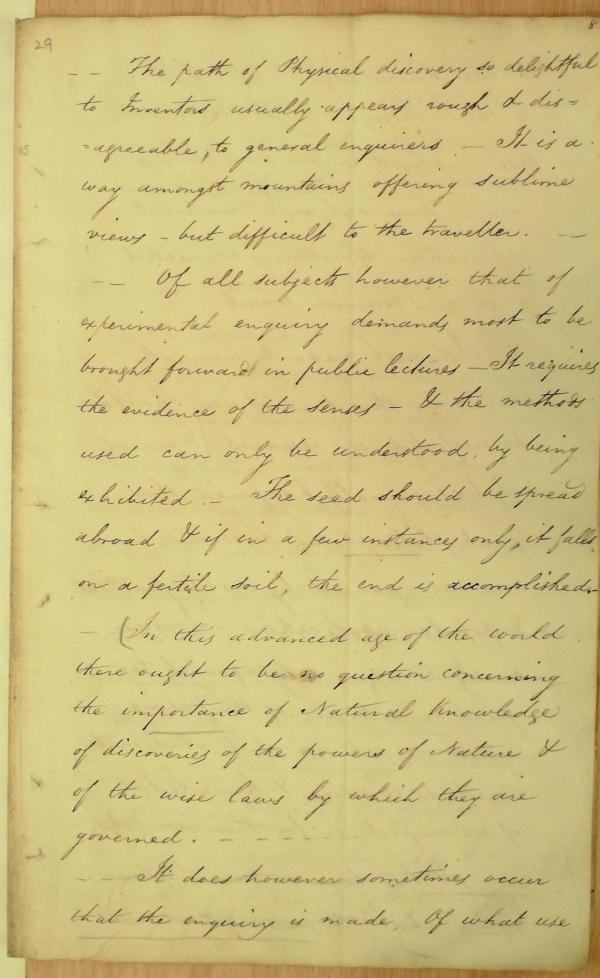 29
8
-- The path of Physical discovery so delightful
to Inventors, usually appears rough & dis=
=agreeable, to general enquirers - It is a
way amongst mountains offering sublime
views - but difficult to the traveller. --
-- Of all subjects however that of
experimental enquiry demands most to be
brought forward in public lectures - It requires
the evidence of the senses - & the methods
used can only be understood, by being
exhibited. - The seed should be spread
abroad & if in a few instances only, it falls
on a fertile soil, the end is accomplished.-
- (In this advanced age of the world
there ought to be no question concerning
the importance of Natural Knowledge
of discoveries of the powers of Nature &
of the wise laws by which they are
governed. - - - - -
-- It does however sometimes occur
that the enquiry is made, Of what use